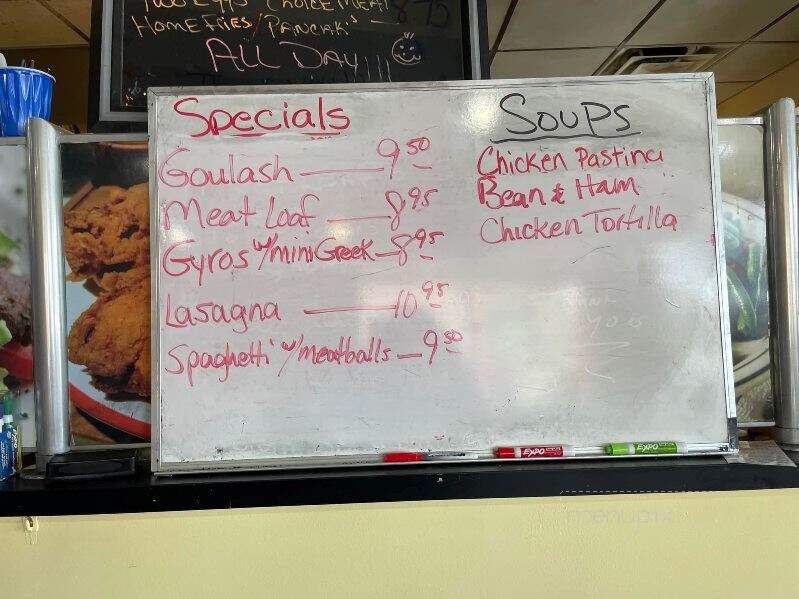 Two Eggs Choice Meat
Home Fries/Pancak's - 8.75
ALL DAY!!!!
Specials
Goulash — 9 50
Meat Loaf — 8 95
Gyros w/mini Greek — 8 95
Lasagna — 10 95
Spaghetti w/meatballs — 9 50
Soups
Chicken Pastina
Bean & Ham
Chicken Tortilla
EXPO
EXPO